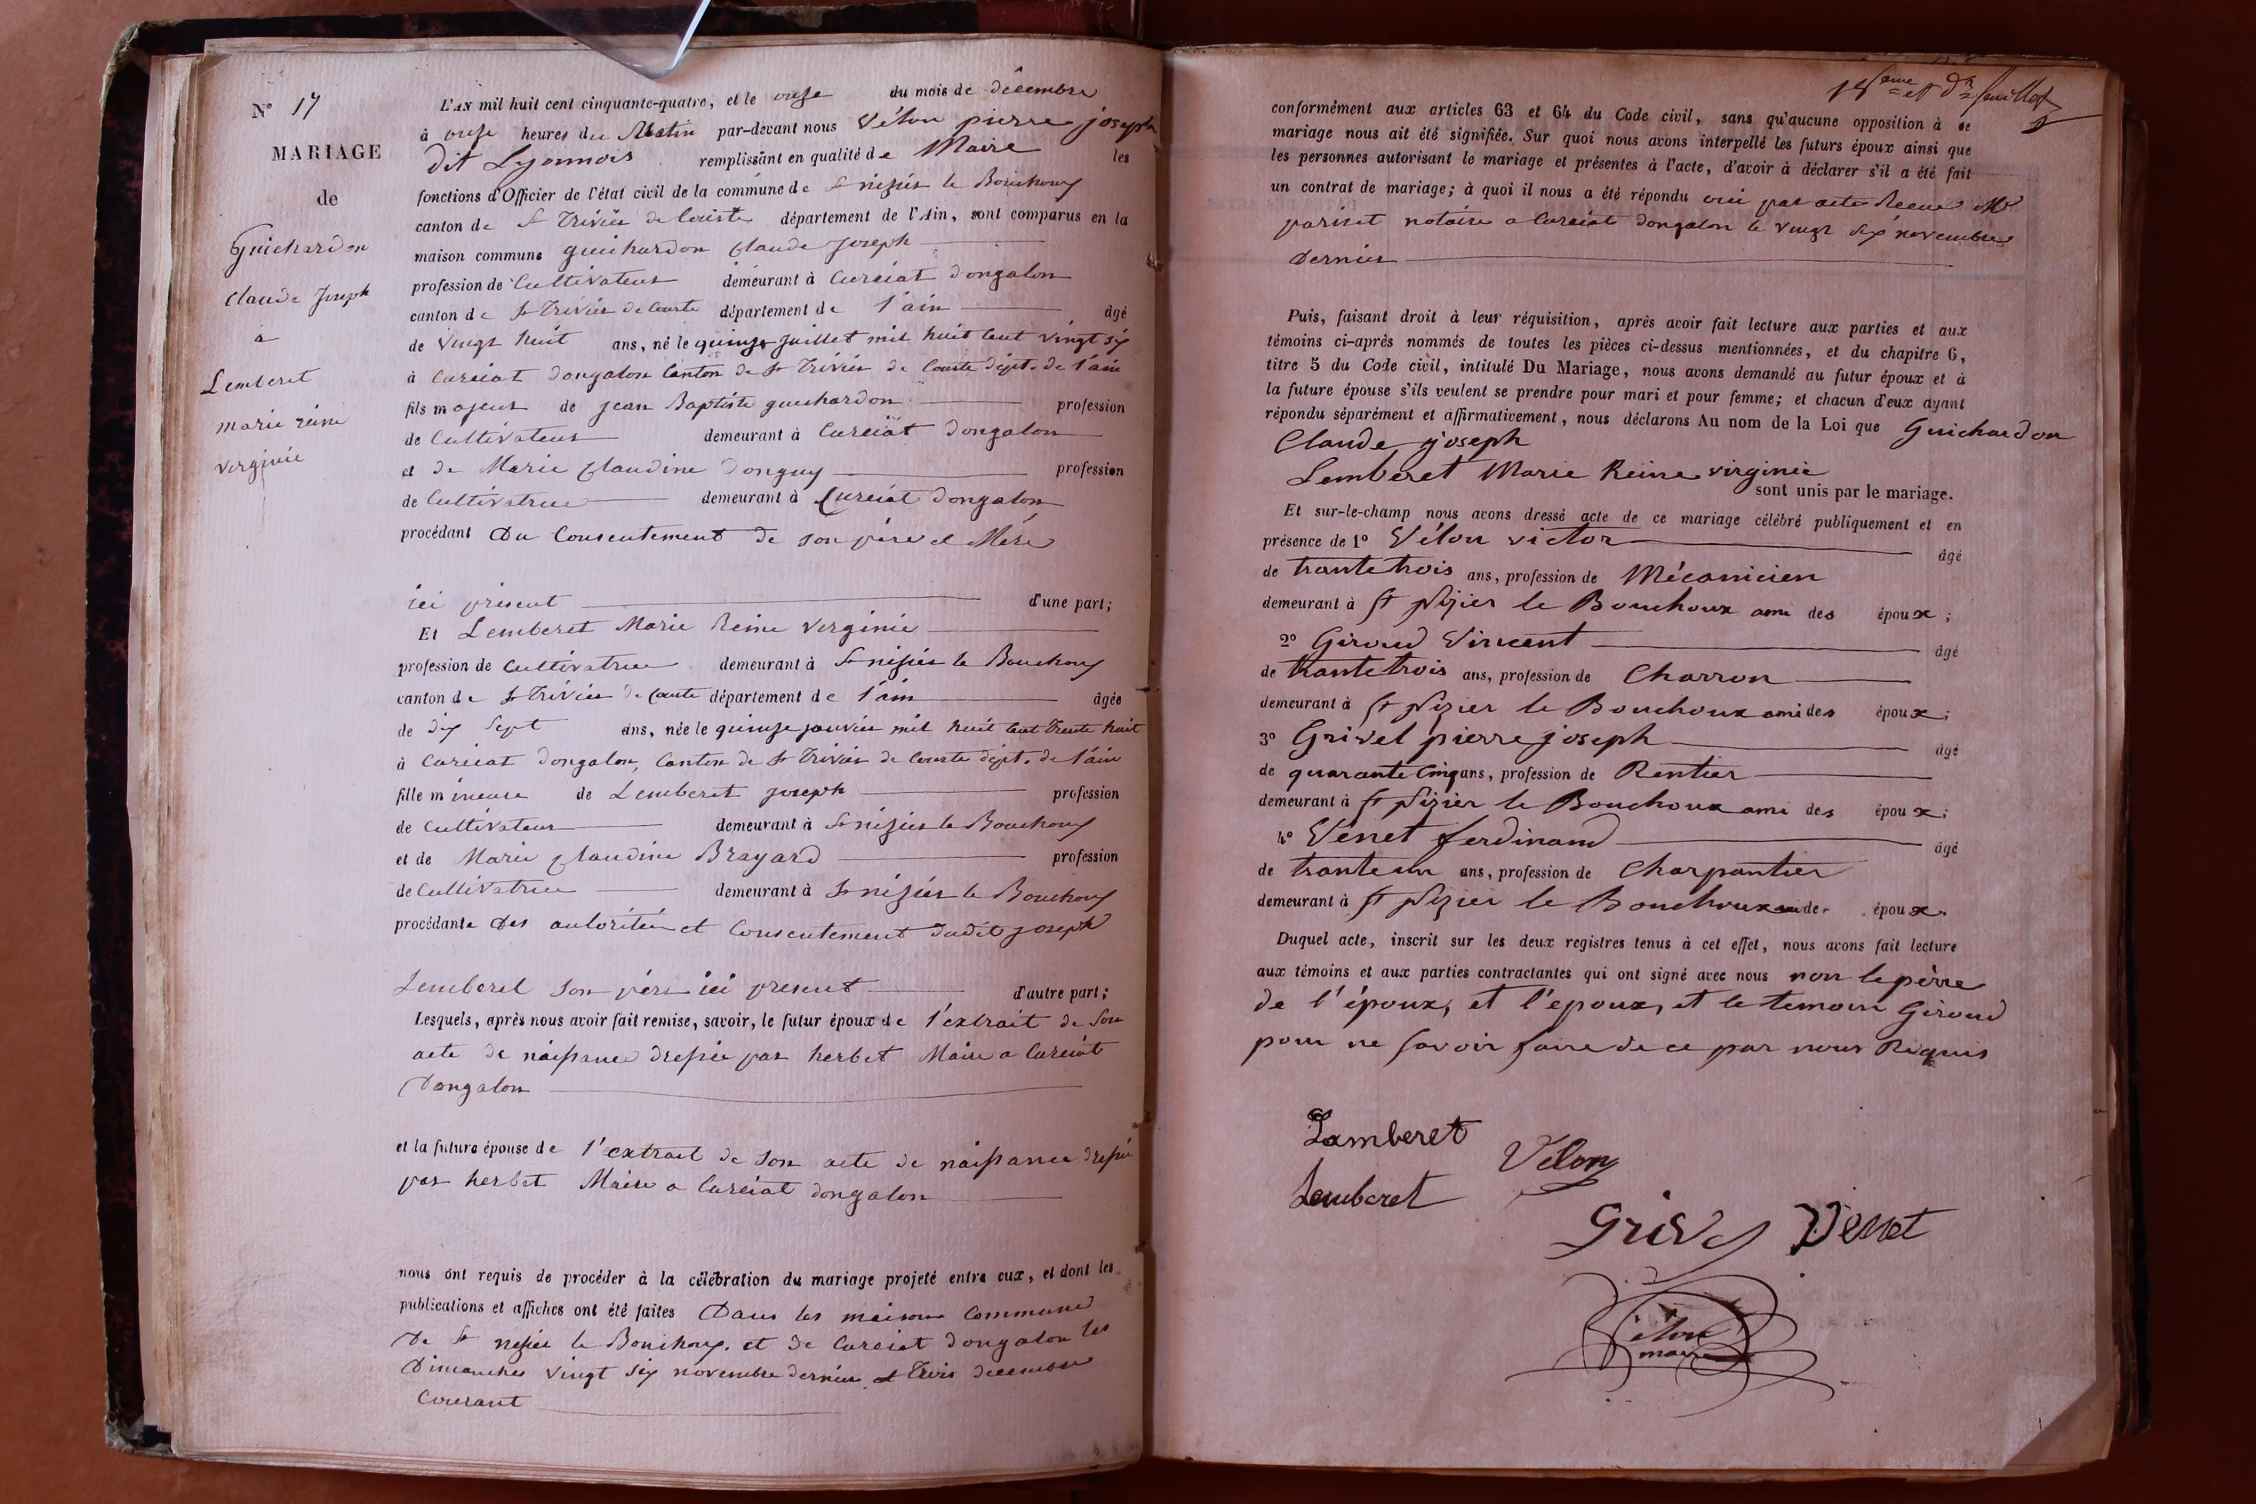 N° 17
MARIAGE
de
Guichardon
Claude Joseph
à
Lemberet
marie reine
virginie
L'AN mil huit cent cinquante-quatre, et le onze du mois de décembre
à onze heures du Matin par-devant nous Vélon pierre joseph
dit Lyonnois remplissant en qualité de Maire les
fonctions d'Officier de l'état civil de la commune de St nizier le Bouchoux
canton de St Trivier de Courte département de l'Ain, sont comparus en la
maison commune guichardon Claude Joseph
profession de Cultivateur demeurant à Curciat dongalon
canton de St Trivier de Courte département de l'ain âgé
de vingt huit ans, né le quinze juillet mil huit cent vingt six
à Curciat dongalon Canton de St Trivier de Courte dépt. de l'ain
fils majeur de jean Baptiste guichardon profession
de Cultivateur demeurant à Curciat dongalon
et de Marie Claudine Donguy profession
de Cultivatrice demeurant à Curciat dongalon
procédant du Consentement de son père et Mère
ici présent d'une part;
Et Lemberet Marie Reine Verginie
profession de Cultivatrice demeurant à St nizier le Bouchoux
canton de St Trivier de Courte département de l'ain âgée
de dix sept ans, née le quinze janvier mil huit cent trente huit
à Curciat dongalon, Canton de St Trivier de Courte dépt. de l'ain
fille mineure de Lemberet joseph profession
de Cultivateur demeurant à St nizier le Bouchoux
et de Marie Claudine Brayard profession
de Cultivatrice demeurant à St nizier le Bouchoux
procédante des autoritée et Consentement dudit joseph
Lemberet son père ici présent d'autre part;
Lesquels, après nous avoir fait remise, savoir, le futur époux de l'extrait de son
acte de naissance dressée par herbet Maire a Curciat
Dongalon
et la future épouse de l'extrait de son acte de naissance dressée
par herbet Maire a Curciat dongalon
nous ont requis de procéder à la célébration du mariage projeté entre eux, et dont les
publications et affiches ont été faites Dans les maisons Commune
De St nizier le Bouchoux. et de Curciat dongalon les
Dimanches vingt six novembre dernier et trois decembre
Courant
15eme et dr feuillet
conformément aux articles 63 et 64 du Code civil, sans qu'aucune opposition à ce
mariage nous ait été signifiée. Sur quoi nous avons interpellé les futurs époux ainsi que
les personnes autorisant le mariage et présentes à l'acte, d'avoir à déclarer s'il a été fait
un contrat de mariage; à quoi il nous a été répondu oui par acte Recue Me
pariset notaire a Curciat dongalon le vingt six novembre
Dernier
Puis, faisant droit à leur réquisition, après avoir fait lecture aux parties et aux
témoins ci-après nommés de toutes les pièces ci-dessus mentionnées, et du chapitre 6,
titre 5 du Code civil, intitulé Du Mariage, nous avons demandé au futur époux et à
la future épouse s'ils veulent se prendre pour mari et pour femme; et chacun d'eux ayant
répondu séparément et affirmativement, nous déclarons Au nom de la Loi que Guichardon
Claude joseph
Lemberet Marie Reine virginie
sont unis par le mariage.
Et sur-le-champ nous avons dressé acte de ce mariage célébré publiquement et en
présence de 1° Vélon victor âgé
de trante trois ans, profession de Mécanicien
demeurant à St Nizier le Bouchoux ami des époux;
2° Giroud Vincent âgé
de trante trois ans, profession de Charron
demeurant à St Nizier le Bouchoux ami des époux;
3° Grivel pierre joseph âgé
de quarante cinq ans, profession de Rentier
demeurant à St Nizier le Bouchoux ami des époux;
4° Venet ferdinand âgé
de trante un ans, profession de Charpantier
demeurant à St Nizier le Bouchoux ami de époux.
Duquel acte, inscrit sur les deux registres tenus à cet effet, nous avons fait lecture
aux témoins et aux parties contractantes qui ont signé avec nous non le père
de l'époux, et l'epoux, et le temoin Giroud
pour ne savoir faire de ce par nous Requis
Lamberet
Velon
Lemberet
Grivel Venet
Vélon
maire